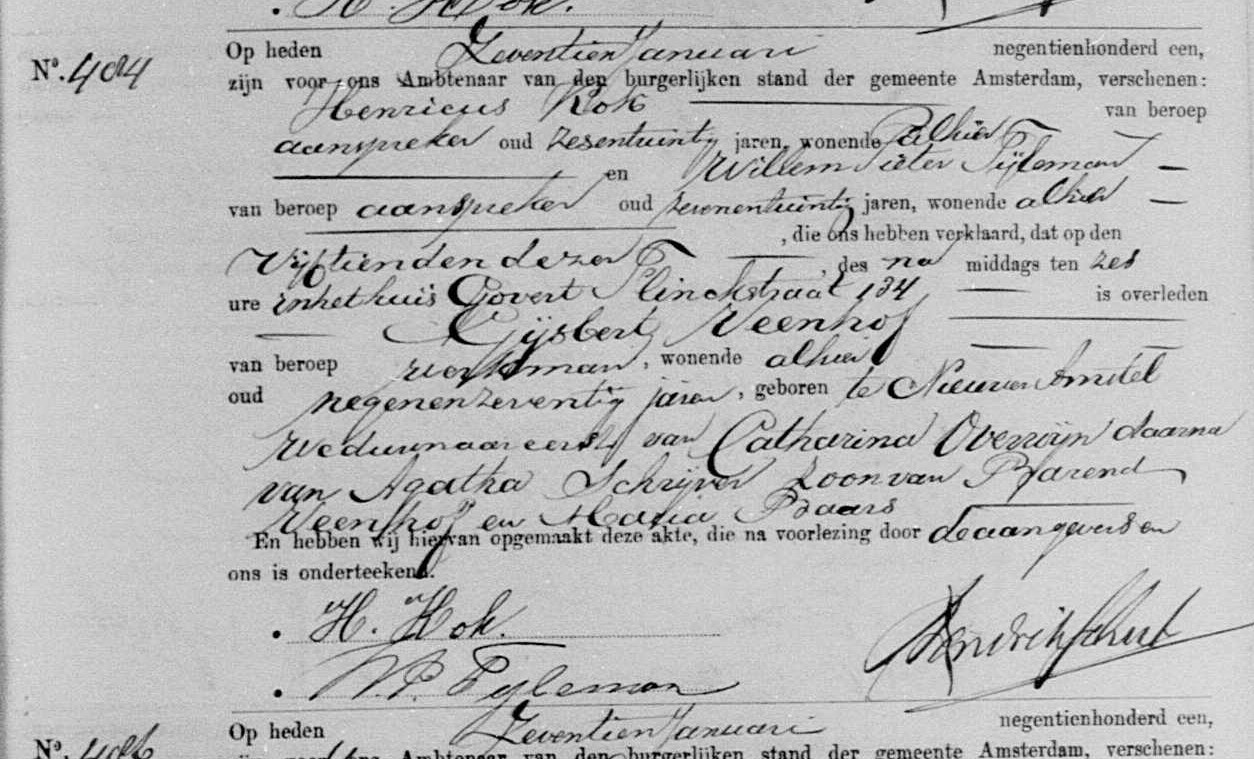 H. Kok.
Nº. 484
Op heden Zeventien Januari negentienhonderd een,
zijn voor ons Ambtenaar van den burgerlijken stand der gemeente Amsterdam, verschenen:
Henricus Kok van beroep
aanspreker oud zesentwintig jaren, wonende alhier
en Willem Pieter Tijleman
van beroep aanspreker oud zevenentwintig jaren, wonende alhier
, die ons hebben verklaard, dat op den
Vijftienden dezer, des na middags ten zes
ure in het huis Govert Flinckstraat 134 is overleden
Gijsbert Veenhof
van beroep werkman, wonende alhier
oud negenenzeventig jaren, geboren te Nieuwer Amstel
Weduwnaar eerst van Catharina Overrijn daarna
van Agatha Schrijver zoon van Barend
Veenhof en Maria Baars
En hebben wij hiervan opgemaakt deze akte, die na voorlezing door de aangevers en
ons is onderteekend.
H. Kok.
W. P. Tyleman
Op heden Zeventien Januari negentienhonderd een,
Nº.
Ambtenaar van den burgerlijken stand der gemeente Amsterdam, verschenen: